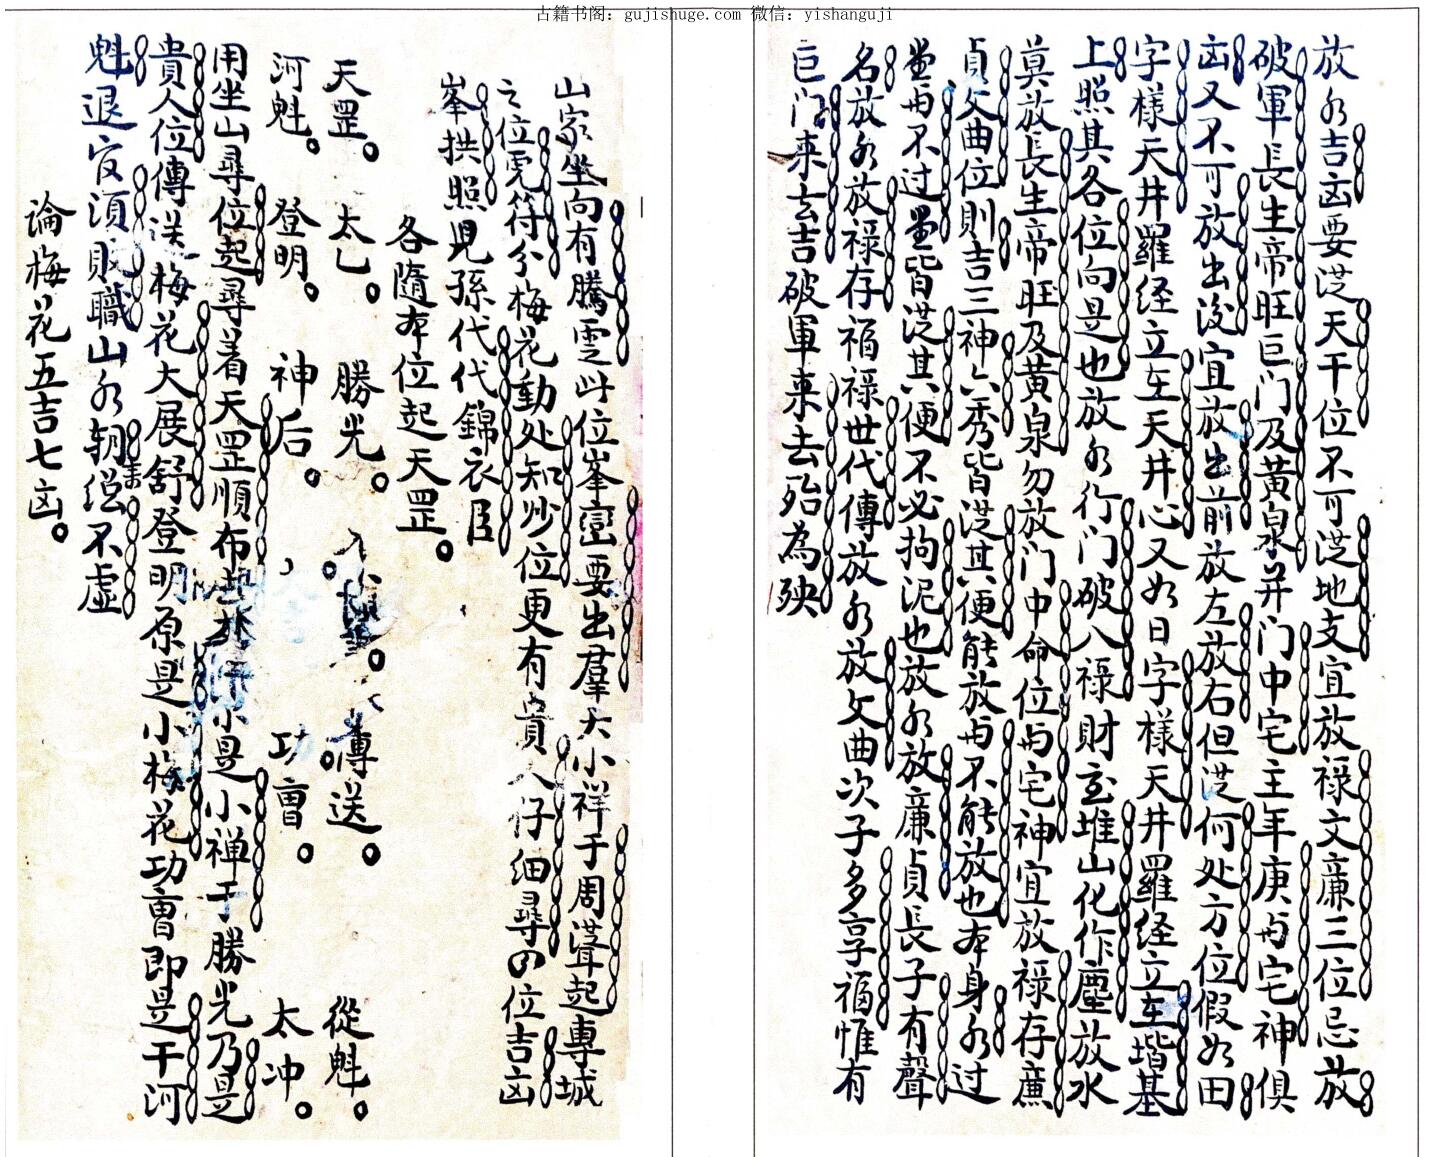 古籍书阁：gujishuge.com 微信：yishanguji
放水吉凶要涇天干位不可涇地支宜放禄文廉三位忌放
破軍長生帝旺巨门及黄泉并门中宅主年庚与宅神俱
凶又不可放出後宜放出前放左放右但涇何处方位假如田
字様天井羅经立在天井心又如日字様天井羅经立在堦基
上照其各位向是也放水行门破八禄財宝堆山化作塵放水
莫放長生帝旺及黄泉勿放门中命位与宅神宜放禄存廉
貞文曲位則吉三神六秀皆涇其便能放与不能放也本身水过
堂与不过堂皆涇其便不必拘泥也放水放廉貞長子有聲
名放水放禄存福禄世代傳放水放文曲次子多享福惟有
巨门来去吉破軍来去殆為殃
山家坐向有騰雲此位峯巒要出羣大小祥于周遊起專城
之位寃符分梅花動处知妙位更有貴人仔细尋四位吉凶
峯拱照見孫代代錦衣臣
各隨本位起天罡。
天罡。太乙。勝光。傳送。從魁。
河魁。登明。神后。功曹。太冲。
用坐山尋位起尋着天罡順布小是小禅于勝光乃是
貴人位傳送梅花大展舒登明原是小梅花功曹即是干河
魁退官須敗職山水朝總不虚
論梅花五吉七凶。